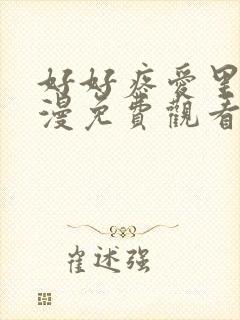 好好疼愛里
漫免費觀看
崔述强